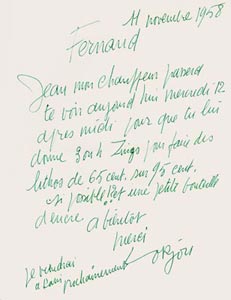 11 novembre 1958
Fernand
Jean mon chauffeur passera
te voir aujourd'hui mercredi 12
après midi pour que tu lui
donne 3 ou 4 Zings pour faire des
lithos de 65 cent. sur 95 cent.
si possible et une petite bouteille
d'encre a bientot
merci
je viendrai
prochainement
Lorjou